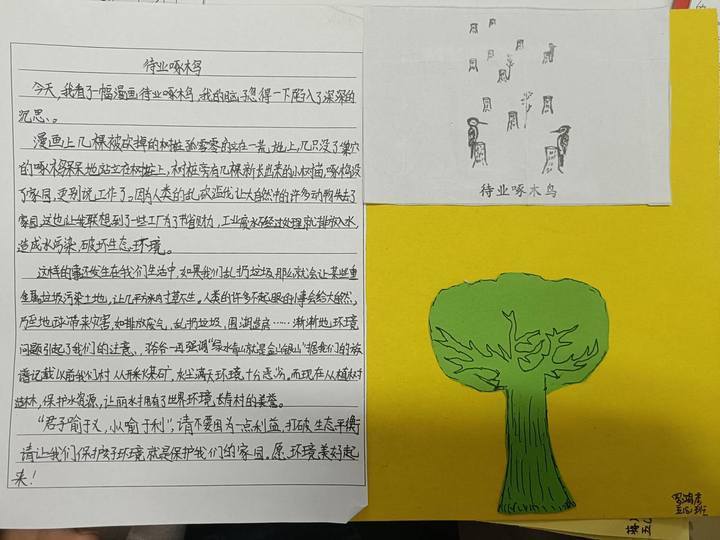 待业啄木鸟
今天,我看了一幅漫画待业啄木鸟,我的脑子忽得一下陷入了深深的
沉思。
漫画上几棵被砍掉的树桩孤零零的立在一荒地上,几只没了巢穴
的啄木鸟呆呆地站立在树桩上,树桩旁有几棵新长出来的小树苗,啄木鸟没
了家园,更别说工作了。因为人类的乱砍滥伐让大自然中的许多动物失去了
家园,这也让我联想到了一些工厂为了节省财力,工业废水不经过处理就排放入水,
造成水污染,破坏生态环境。
这样的事还发生在我们生活中,如果我们乱扔垃圾,那么就会让某些重
金属垃圾污染土地,让几平方米内寸草不生。人类的许多不起眼的小事会给大自然,
乃至地球带来灾害,如排放废气,乱扔垃圾,围湖造店……渐渐地,环境
问题引起了我们的注意、爷爷一再强调“绿水青山就是金山银山”据我们的族
谱记载以前我们村从开采煤矿,灰尘满天环境十分恶劣。而现在从植树
造林,保护水资源,让丽水拥有了世界环境长寿村的美誉。
“君子喻于义,小人喻于利”,请不要因为一点利益,打破生态平衡
请让我们保护好环境就是保护我们的家园。愿环境美好起
来!
待业啄木鸟
五